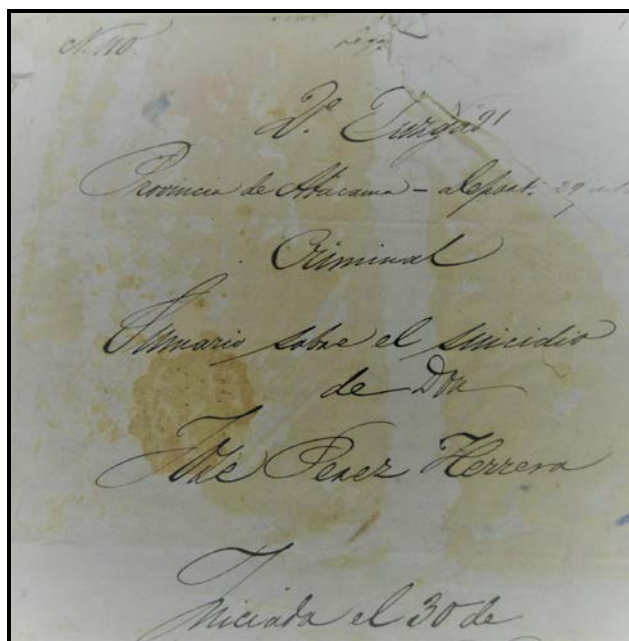 N. 110.
2º Juzgado
Provincia de Atacama - Depart.
Criminal
Sumario sobre el suicidio
de Don
José Perez Herrera
Iniciada el 30 de